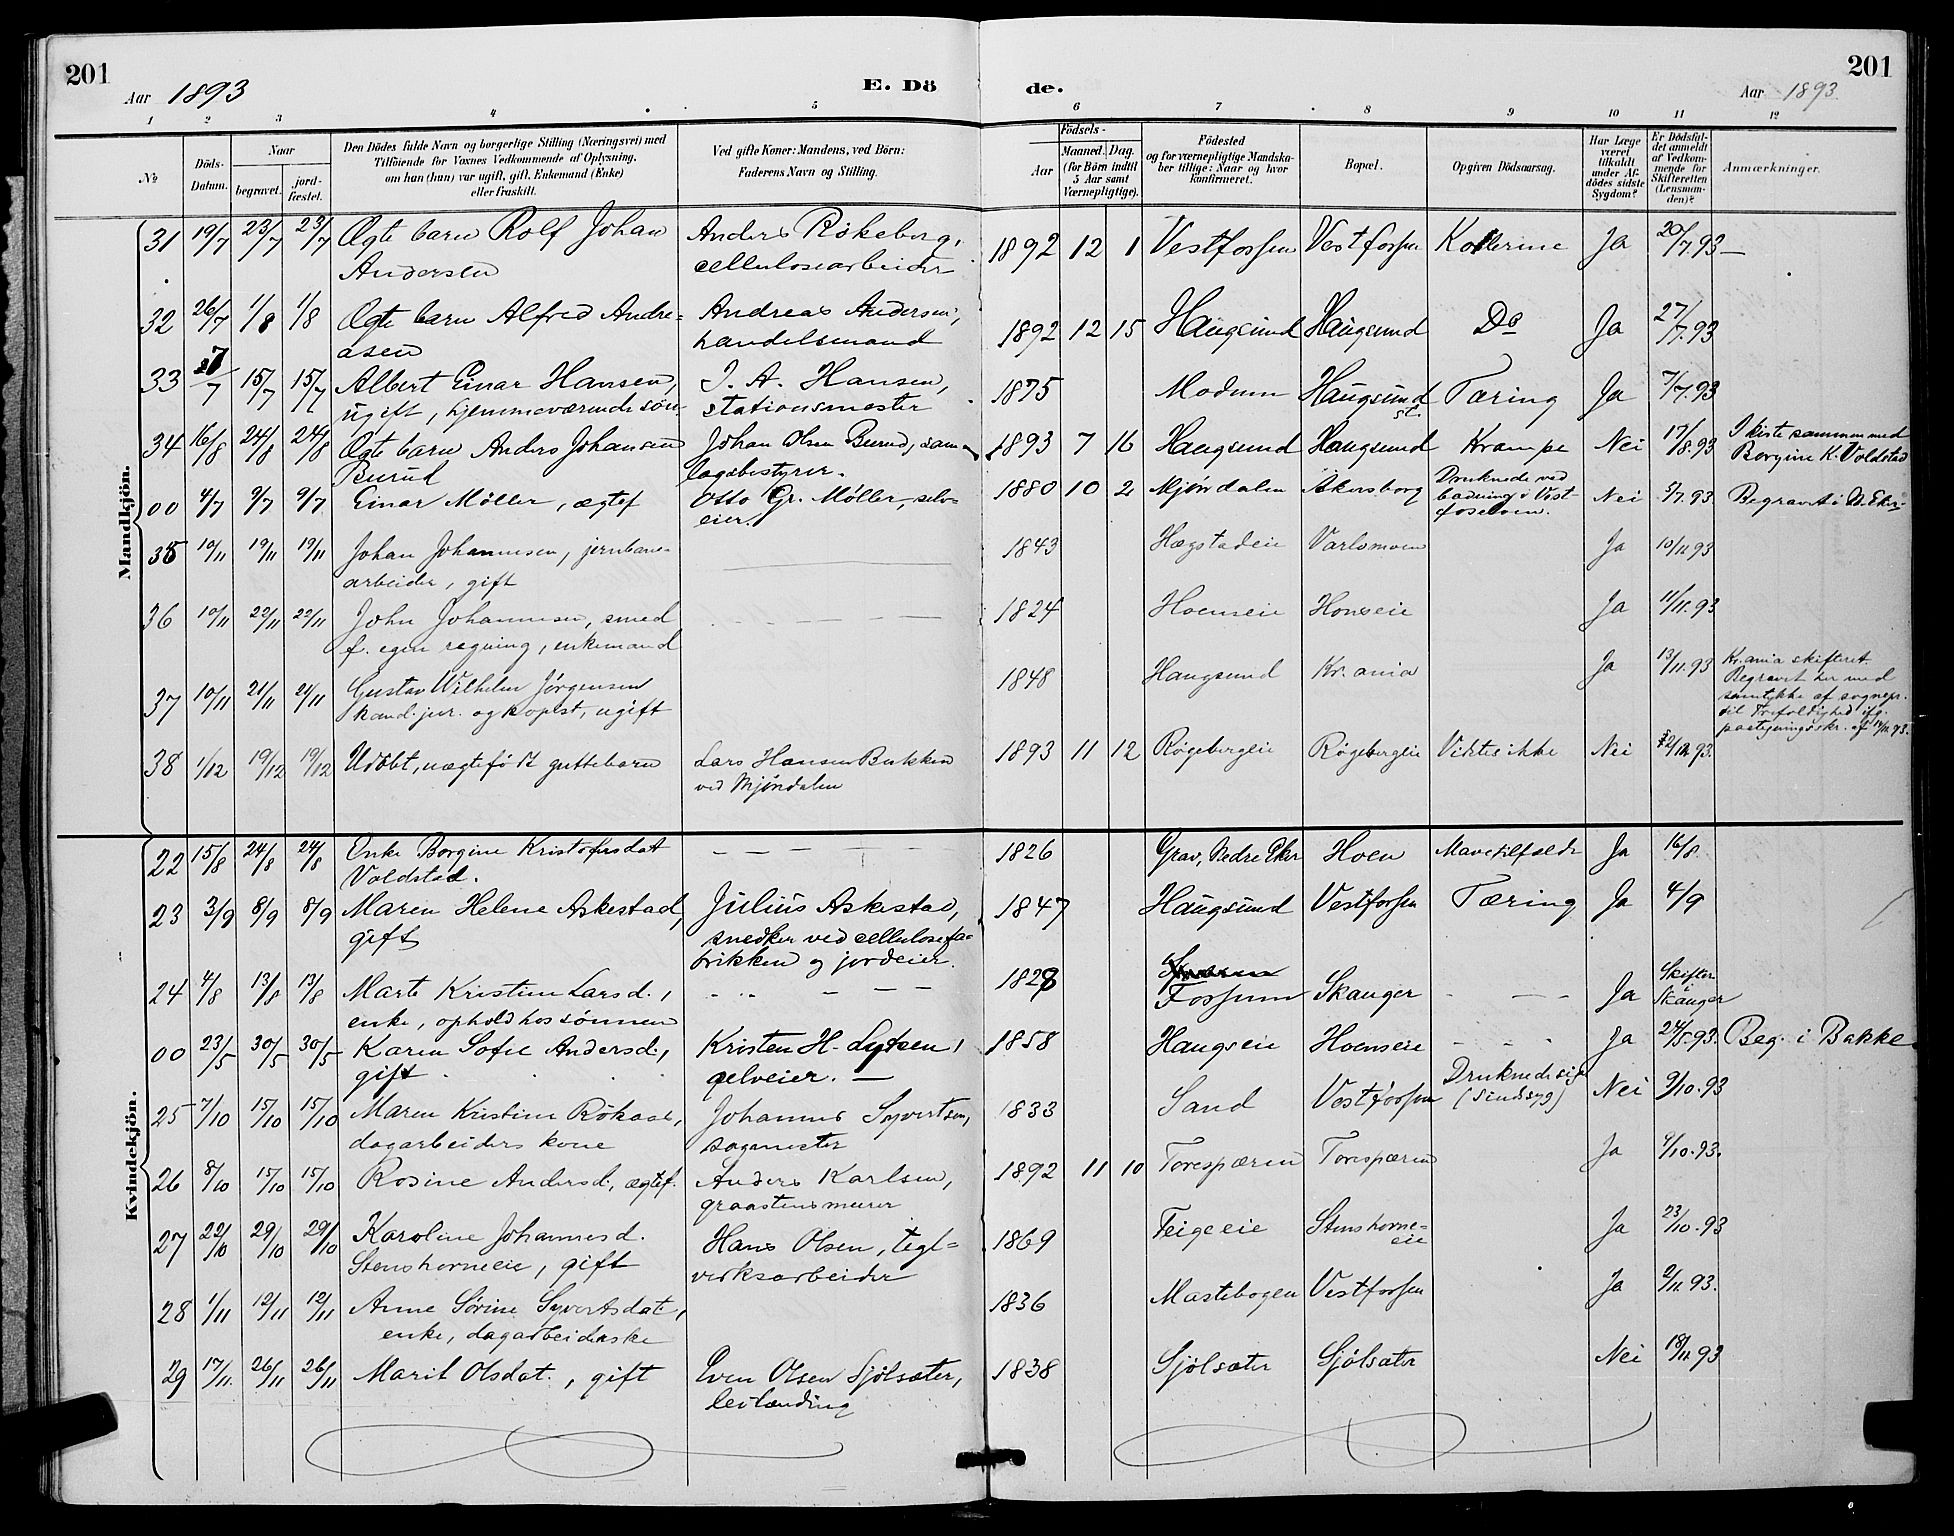 201
Aar 1893
E. Dö
de.
Aar 1893
201
1 2 3 4 5 6 7 8 9 10 11 12
№
Döds-
Datum.
Naar
begravet.
jord-
fæstet.
Den Dödes fulde Navn og borgerlige Stilling (Næringsvei) med
Tilföiende for Voxnes Vedkommende af Oplysning,
om han (hun) var ugift, gift, Enkemand (Enke)
eller fraskilt.
Ved gifte Koner: Mandens, ved Börn:
Faderens Navn og Stilling.
Födsels-
Aar
Maaned. Dag.
(for Börn indtil
5 Aar samt
Værnepligtige).
Födested
og for værnepligtige Mandska-
ber tillige: Naar og hvor
konfirmeret.
Bopæl.
Opgiven Dödsaarsag.
Har Læge
været
tilkaldt
under Af-
dödes sidste
Sygdom?
Er Dödsfal-
det anmeldt
af Vedkom-
mende for
Skifteretten
(Lensman-
den)?
Anmærkninger.
Mandkjön.
31 19/7 23/7 23/7 Ægte barn Rolf Johan Anders Røkeberg, 1892 12 1 Vestfossen Vestfossen Kollerine Ja 20/7.93 —
Andersen cellulosearbeider
32 26/7 1/8 1/8 Ægte barn Alfred Andre- Andreas Andersen, 1892 12 15 Haugsund Haugsund Do Ja 27/7.93
asen handelsmand
33 7/7 15/7 15/7 Albert Einar Hansen, I. A. Hansen, 1875 Modum Haugsund st. Tæring Ja 7/7.93
ugift, hjemmeværende søn stationsmester
34 16/8 24/8 24/8 Ægte barn Anders Johansen Johan Olsen Burud, sam- 1893 7 16 Haugsund Haugsund Krampe Nei 17/8.93 I kiste sammen med
Burud lagsbestyrer. Borgine K. Voldstad
00 4/7 9/7 9/7 Einar Møller, ægtef Otto Gr. Møller, selv- 1880 10 2 Mjøndalen Akersborg Druknede ved Nei 5/7.93 Begravet i N. Eker
eier. badning i Vest-
foselven.
35 10/11 19/11 19/11 Johan Johannesen, jernbane- 1843 Hægstadeie Varlsmoen Ja 10/11.93
arbeider, gift
36 10/11 22/11 22/11 John Johannesen, smed 1824 Hoenseie Honseie Ja 11/11.93
f. egen regning, enkemand
37 10/11 21/11 21/11 Gustav Wilhelm Jørgensen 1848 Haugsund Kr.ania Ja 13/11.93 Kr.ania skifteret.
kand. jur. og kopist, ugift Begravet her med
samtykke af sognepr.
til Trefoldighed ifg.
paategningsskr. af 14/11 93.
38 1/12 19/12 19/12 Udøbt, uægtefødt guttebarn Lars Hansen Bukken 1893 11 12 Røgebergeie Røgebergeie Vidstes ikke Nei 2/12.93.
ved Mjøndalen
Kvindekjön.
22 15/8 24/8 24/8 Enke Borgine Kristofersdat — — — — — 1826 Grav, Nedre Eker Hoen Mavetilfælde Ja 16/8
Voldstad.
23 3/9 8/9 8/9 Maren Helene Askestad, Julius Askestad, 1847 Haugsund Vestfossen Tæring Ja 4/9
gift snedker ved cellulosefa-
brikken og jordeier.
24 4/8 13/8 13/8 Marte Kristine Larsd., 1828 Fossum Skanger Ja Skifter
enke, ophold hos sønnen i
Skanger
00 23/5 30/5 30/5 Karen Sofie Andersd., Kristen H. Lytsen, 1858 Haugseie Hoenseie Ja 24/5.93. Beg. i Bakke
gift selveier. —
25 7/10 15/10 15/10 Maren Kristine Røkaas, Johannes Syvertsen, 1833 Sand Vestfossen Druknede sig Nei 9/10.93
dagarbeiders kone sagmester (sindssyg)
26 8/10 15/10 15/10 Rosine Andersd., ægtef. Anders Karlsen, 1892 11 10 Torespæren Torespæren Ja 9/10.93.
graastensmurer
27 22/10 29/10 29/10 Karoline Johannesd. Hans Olsen, tegl- 1869 Teigeeie Stenshorne- Ja 23/10.93
Stenshorneeie, gift verksarbeider eie
28 1/11 12/11 12/11 Anne Sørine Syvertsdat, 1836 Mastebogen Vestfossen Ja 2/11.93.
enke, dagarbeiderske
29 17/11. 26/11 26/11 Marit Olsdat., gift Even Olsen Sjølsæter, 1838 Sjølsæter Sjølsæter Nei 18/11.93
leilænding